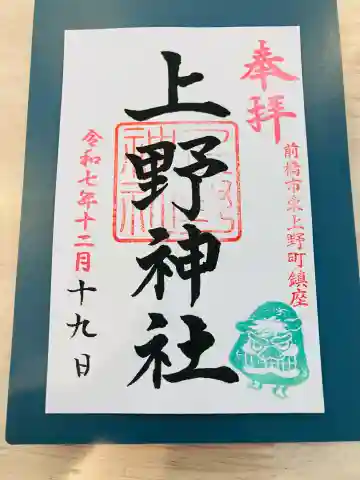 奉拝
前橋市東上野町鎮座
上野神社
令和七年十二月十九日